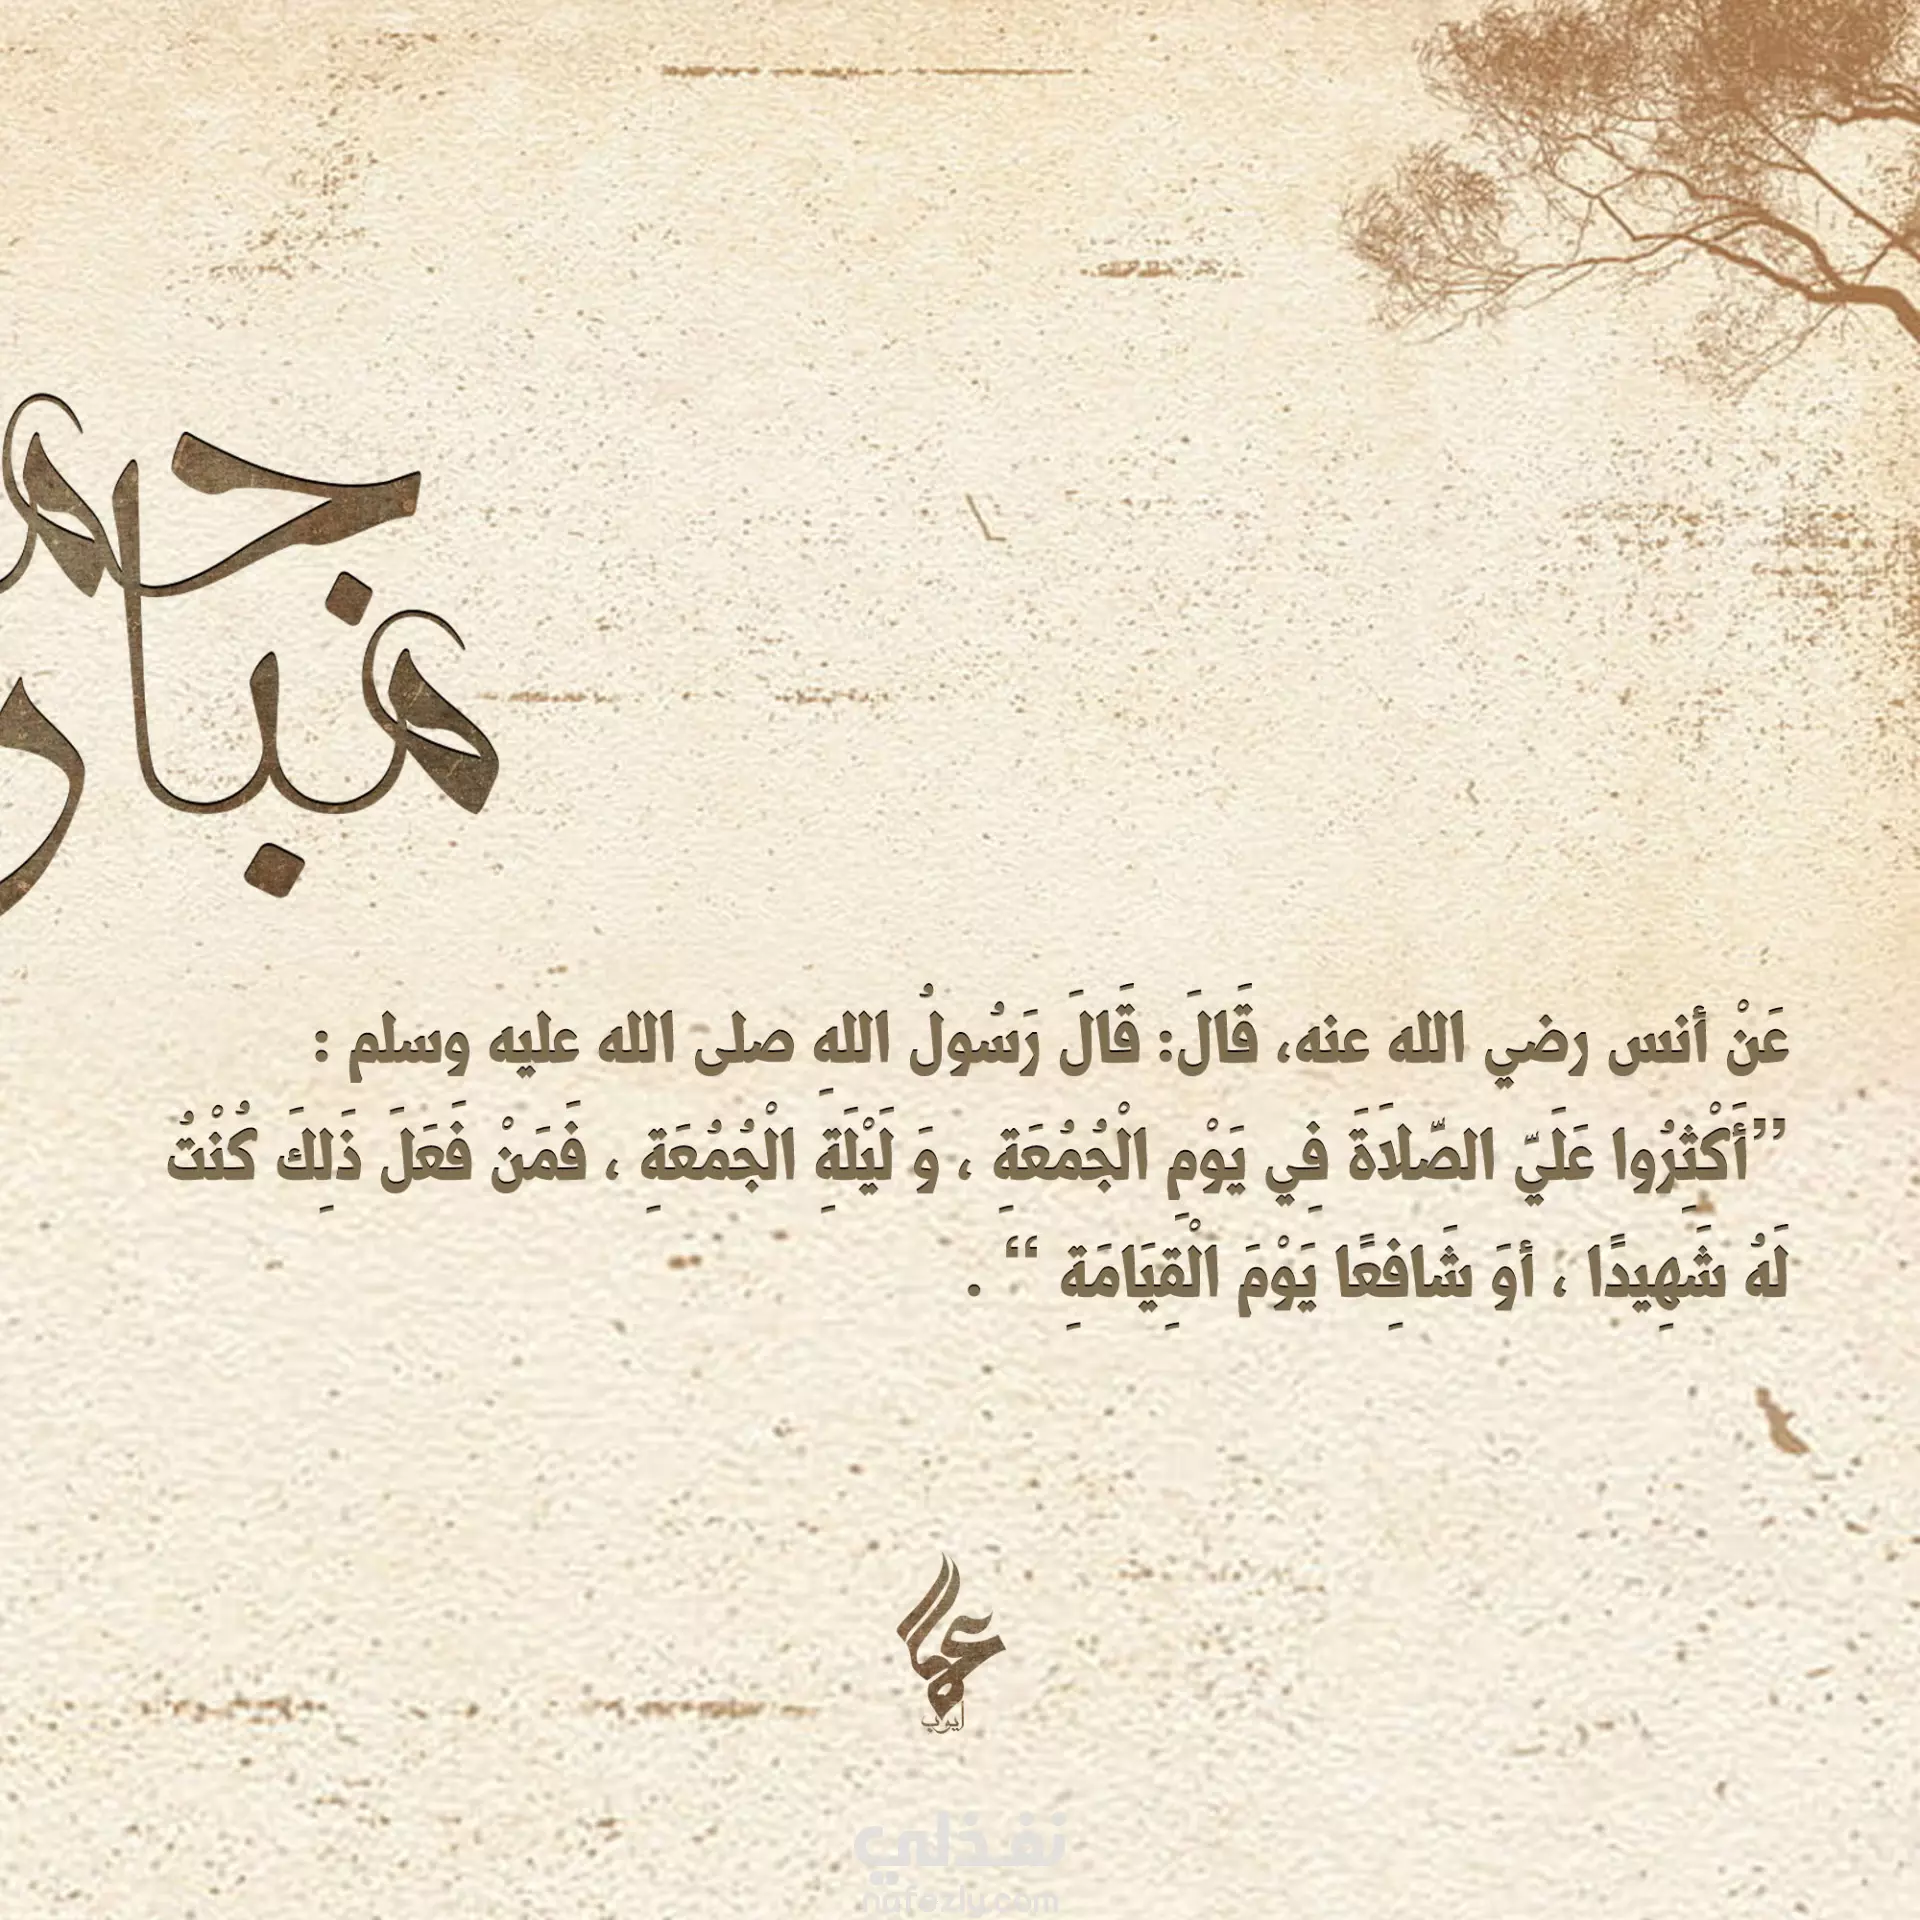 عَنْ أنس رضي الله عنه، قَالَ: قَالَ رَسُولُ اللهِ صلى الله عليه وسلم :
”أَكْثِرُوا عَلَيّ الصّلاَةَ فِي يَوْمِ الْجُمُعَةِ ، وَ لَيْلَةِ الْجُمُعَةِ ، فَمَنْ فَعَلَ ذَلِكَ كُنْتُ
لَهُ شَهِيدًا ، أوَ شَافِعًا يَوْمَ الْقِيَامَةِ “ .
أيوب
نفذلي
nafezly.com